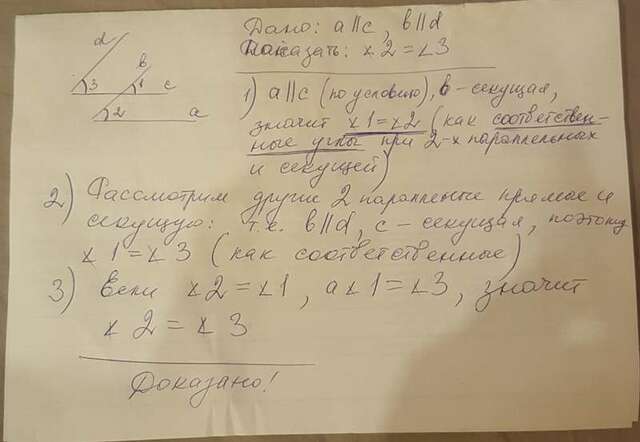 d
в
3 1 c
2 a
Дано: a||c, в||d
Доказать: ∠2=∠3
1) a||c (по условию), в - секущая,
значит ∠1=∠2 (как соответствен-
ные углы при 2-х параллельных
и секущей)
2) Рассмотрим другие 2 параллельные прямые и
секущую: т.к. в||d, c - секущая, поэтому
∠1=∠3 (как соответственные)
3) Если ∠2=∠1, а ∠1=∠3, значит
∠2=∠3
Доказано!